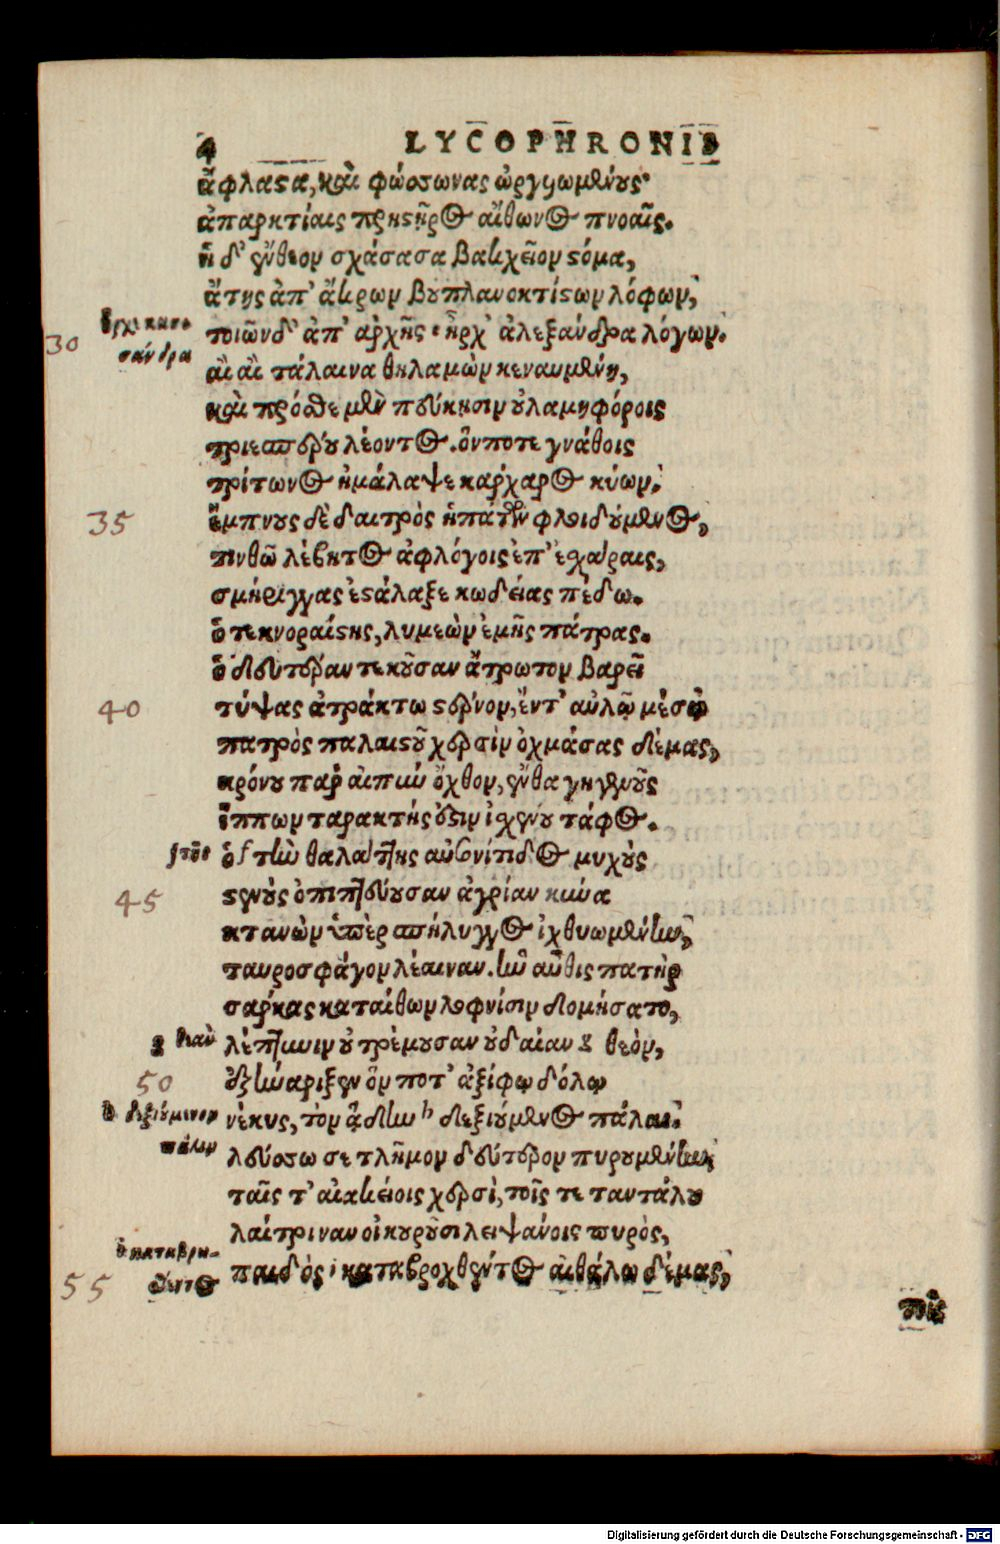 4 LYCOPHRONIS
ἄφλαστα, καὶ φώσσωνας ὠργυωμένους·
ἀπαρκτίαις πρηστῆρος αἴθωνος πνοαῖς.
ἡ δ' ἔνθεον σχάσασα βακχεῖον στόμα,
ἄτης ἀπ' ἄκρων βουπλανοκτίστων λόφων,
30 τοιῶνδ' ἀπ' ἀρχῆς ἦρχ' ἀλεξάνδρα λόγων.
αἲ αἲ τάλαινα θηλαμὼν κεκαυμένη,
καὶ πρόσθε μὲν πεύκησιν οὐλαμηφόροις
τριεσπέρου λέοντος. ὅν ποτε γνάθοις
τρίτωνος ἠμάλαψε καρχαρος κύων.
35 ἔμπνους δὲ δαιτρὸς ἡπάτων φλοιδούμενος,
τινθῶ λέβητος ἀφλόγοις ἐπ' ἐσχάραις,
σμήριγγας ἐστάλαξε κωδείας πέδω.
ὁ τεκνοραίστης, λυμεὼν ἐμῆς πάτρας.
ὁ δευτέραν τεκοῦσαν ἄτρωτον βαρεῖ
40 τύψας ἀτράκτω στέρνον, ἔν τ' αὐλῷ μέσῳ
πατρὸς παλαιστοῦ χερσὶν ὀχμάσας δέμας,
κρόνου παρ' αἰπὺν ὄχθον, ἔνθα γηγενοῦς
ἵππων ταρακτής ἐστιν ἰσχένου τάφος.
ὁ τὴν θαλάττης αὐσονίτιδος μυχοὺς
45 στενοὺς ὀπιπτεύουσαν ἀγρίαν κύνα
κτανὼν ὑπὲρ σπήλυγγος ἰχθυωμένην,
ταυροσφάγον λέαιναν. ἣν αὖθις πατὴρ
σάρκας καταίθων λοφνίσιν δομήσατο,
λέπτυνιν οὐ τρέμουσαν οὐδαίαν θεόν,
50 ἐξηνάριξεν ὅν ποτ' ἀξίφῳ δόλῳ
νέκυς, τὸν ᾅδην δεξιούμενος πάλαι.
λεύσσω σε τλῆμον δεύτερον πυρουμένην
ταῖς τ' αἰακείοις χερσὶ, τοῖς τε ταντάλου
λαίτριναν οἰκουροῦσι λειψάνοις πυρὸς,
55 παιδὸς καταβροχθέντος αἰθάλω δέμας,
τοῖς
Digitalisierung gefördert durch die Deutsche Forschungsgemeinschaft - DFG